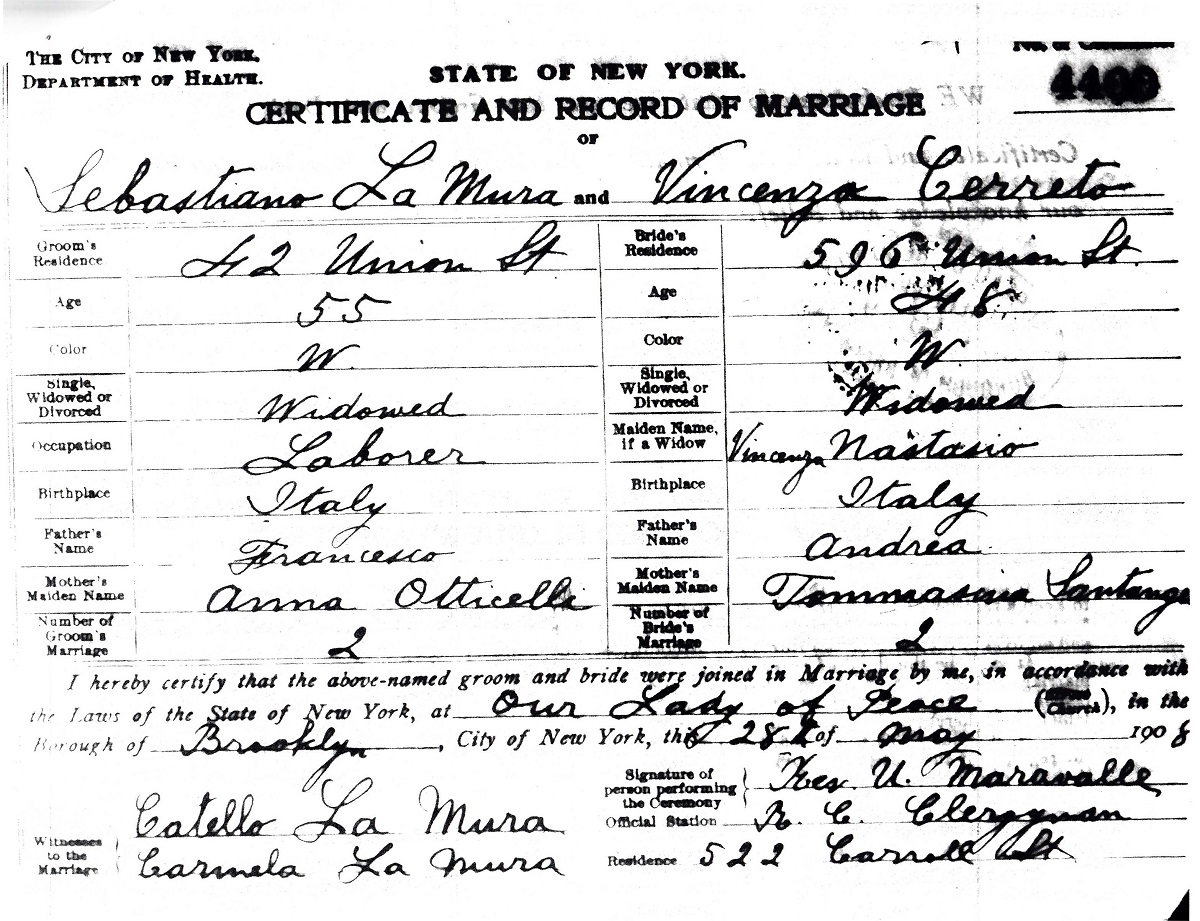 THE CITY OF NEW YORK.
DEPARTMENT OF HEALTH.
STATE OF NEW YORK.
CERTIFICATE AND RECORD OF MARRIAGE
OF
No. of Certificate
4409
Sebastiano La Mura and Vincenza Cerreto
Groom's Residence 42 Union St Bride's Residence 596 Union St.
Age 55 Age 48
Color W. Color W
Single, Widowed or Divorced Widowed Single, Widowed or Divorced Widowed
Occupation Laborer Maiden Name, if a Widow Vincenza Nastasio
Birthplace Italy Birthplace Italy
Father's Name Francesco Father's Name Andrea
Mother's Maiden Name Anna Otticelli Mother's Maiden Name Tommasina Santange
Number of Groom's Marriage 2 Number of Bride's Marriage 2
I hereby certify that the above-named groom and bride were joined in Marriage by me, in accordance with
the Laws of the State of New York, at Our Lady of Peace (Church), in the
Borough of Brooklyn, City of New York, this 28 of May 1908
Witnesses to the Marriage
Catello La Mura
Carmela La Mura
Signature of person performing the Ceremony Rev U. Maravalle
Official Station R. C. Clergyman
Residence 522 Carroll St